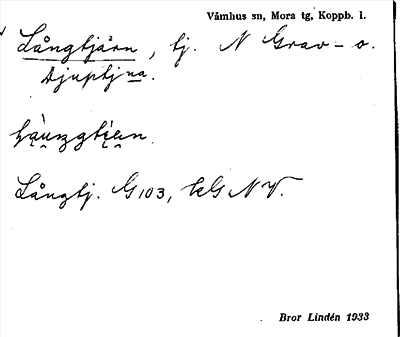 Våmhus sn, Mora tg, Koppb. l.
Långtjärn, tj. N Grav- o.
Djuptjna.
Långtj. G 103, kG NV.
Bror Lindén 1933